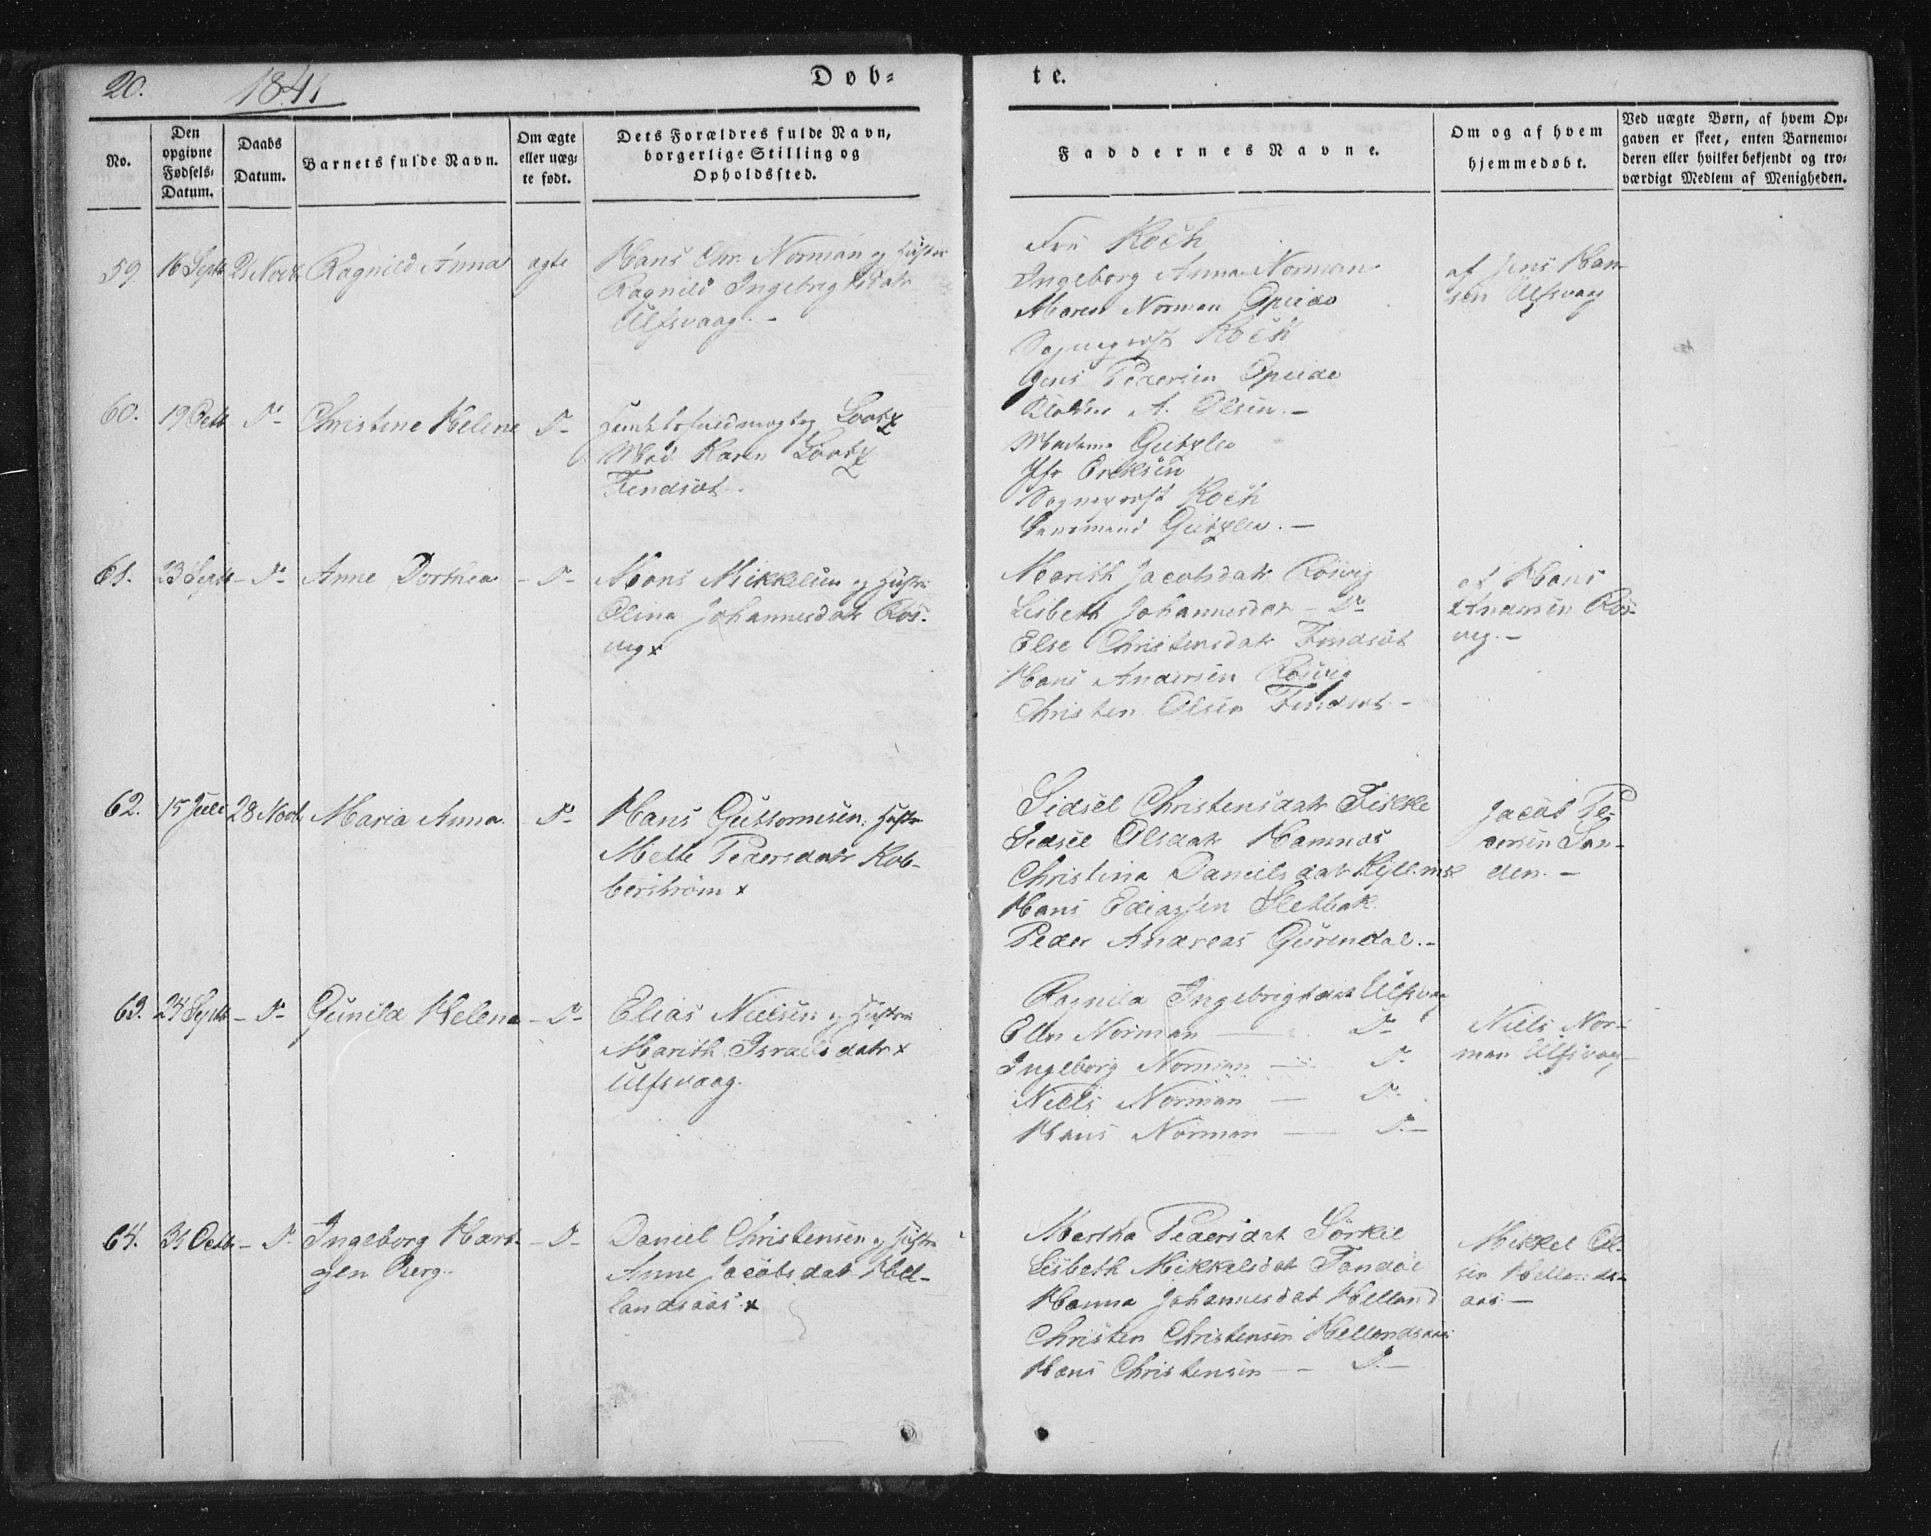 20. 1841 Døb-
te.
No.
Den opgivne Fødsels-Datum.
Daabs Datum.
Barnets fulde Navn.
Om ægte eller uæg-te født.
Dets Forældres fulde Navn, borgerlige Stilling og Opholdssted.
Faddernes Navne.
Om og af hvem hjemmedøbt.
Ved uægte Børn, af hvem Op-
gaven er skeet, enten Barnemo-
deren eller hvilket bekjendt og tro-
værdigt Medlem af Menigheden.
59. 16 Septb 21 Novb. Ragnild Anna ægte
Hans Chr. Norman og Hustru
Ragnild Ingebrigtsdatr
Ulfsvaag. -
Fru Koch
Ingeborg Anna Norman
Maren Norman Opeide
Sogneprest Koch
Jens Pedersen Opeide
A. Olsen. -
af Jens Han-
sen Ulfsvaag
60. 19 Octb D- Christine Helene D-
Lootz
Mad. Karen Lootz
Findsøt
Madame
Jfr Eriksen
Sogneprest Koch
Lensmand
61. 23 Septb - D- Anne Dorthea - D-
Mons Mikkelsen og Hustru
Olina Johannesdatr Røs-
vig x
Marith Jacobsdatr Røsvig
Lisbeth Johannesdar - D-
Else Christensdatr Findsøt
Hans Andersen Røsvig
Christen Olsen Findsøt -
af Hans
Andersen Røs-
vig. -
62. 15 Juli 28 Novb. Maria Anna. - D-
Hans Guttormsen. Hustr
Mette Pedersdatr Kob-
berstrøm x
Sidsel Christensdatr Fikke
Sidsel Olsdatr Hamnes
Christina Danielsdatr
Hans Sletbak.
Peder Andreas -
Jacob Pe-
dersen San-
den. -
63. 24 Septb - D- Gunild Helena - D-
Elias Nielsen og Hustru
Marith Israelsdatr x
Ulfsvaag.
Ragnila Ingebrigtdat Ulfsvag
Ellen Norman - D-
Ingeborg Norman - D-
Niels Norman - D-
Hans Norman - D-
Niels Nor-
man Ulfsvaag
64. 31 Octb - D- Ingeborg Hart- - D-
gen Berg.
Daniel Christensen og Hustru
Anne Jacobsdat Hel-
landsaas. x
Martha Pedersdat Sørkil
Lisbeth Mikkelsdat
Hanna Johannesdat Helland
Christen Christensen Hellandsaas
Hans Christensen - D. -
Mikkel Ol-
sen Hellands-
aas. -